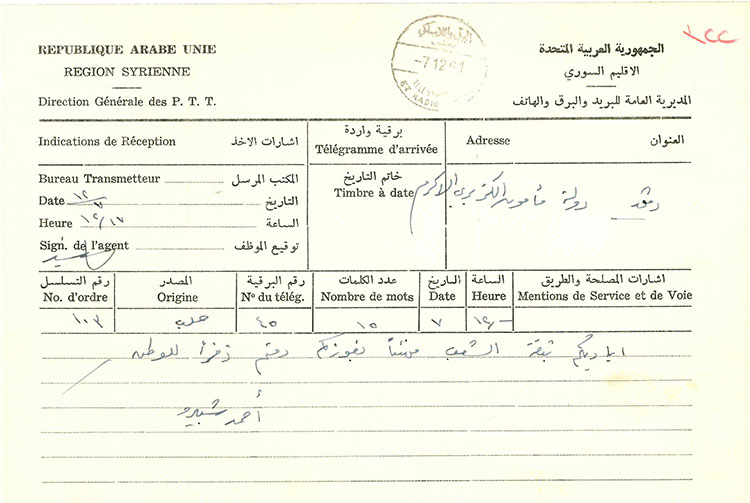 REPUBLIQUE ARABE UNIE
REGION SYRIENNE
Direction Générale des P. T. T.
-7.12 61
ET RADIO
الجمهورية العربية المتحدة
الاقليم السوري
المديرية العامة للبريد والبرق والهاتف
١٢٢
Indications de Réception اشارات الاخذ
برقية واردة
Télégramme d'arrivée
Adresse العنوان
Bureau Transmetteur المكتب المرسل
Date ١٢/٧ التاريخ
Heure ١٢/١٧ الساعة
Sign. de l'agent توقيع الموظف
خاتم التاريخ
Timbre à date
دولة مأمون الكزبري الاكرم
رقم التسلسل المصدر رقم البرقية عدد الكلمات التاريخ الساعة اشارات المصلحة والطريق
No. d'ordre Origine Nº du télég. Nombre de mots Date Heure Mentions de Service et de Voie
١٠٣ حلب ٤٥ ١٥ ٧ ١٢/-
ثقة الشعب بفوزكم دمتم ذخراً للوطن
أحمد